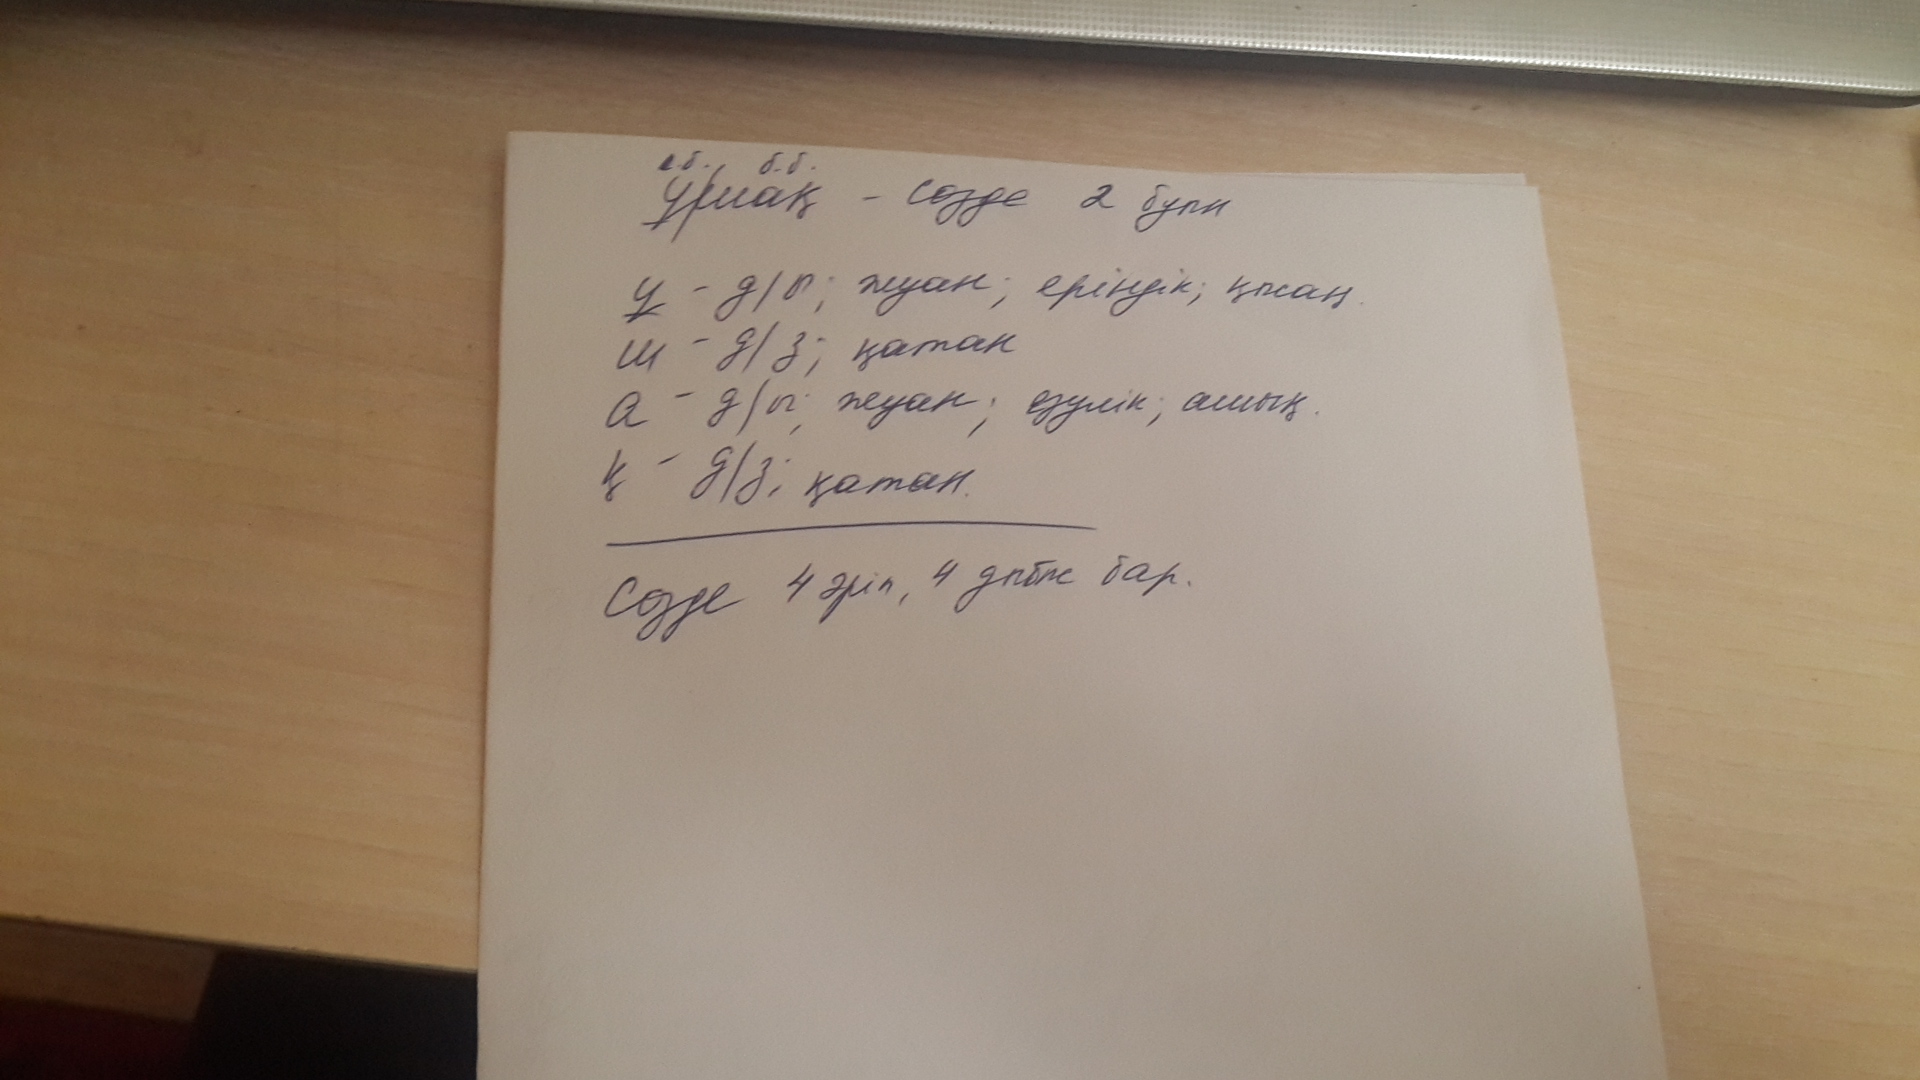 а.б. б.б.
Ұ/шақ – сөзде 2 буын
Ұ – д/ы; жуан; еріндік; қысаң.
Ш – д/з; қатаң
А – д/ы; жуан; езулік; ашық.
Қ – д/з; қатаң.
Сөзде 4 әріп, 4 дыбыс бар.